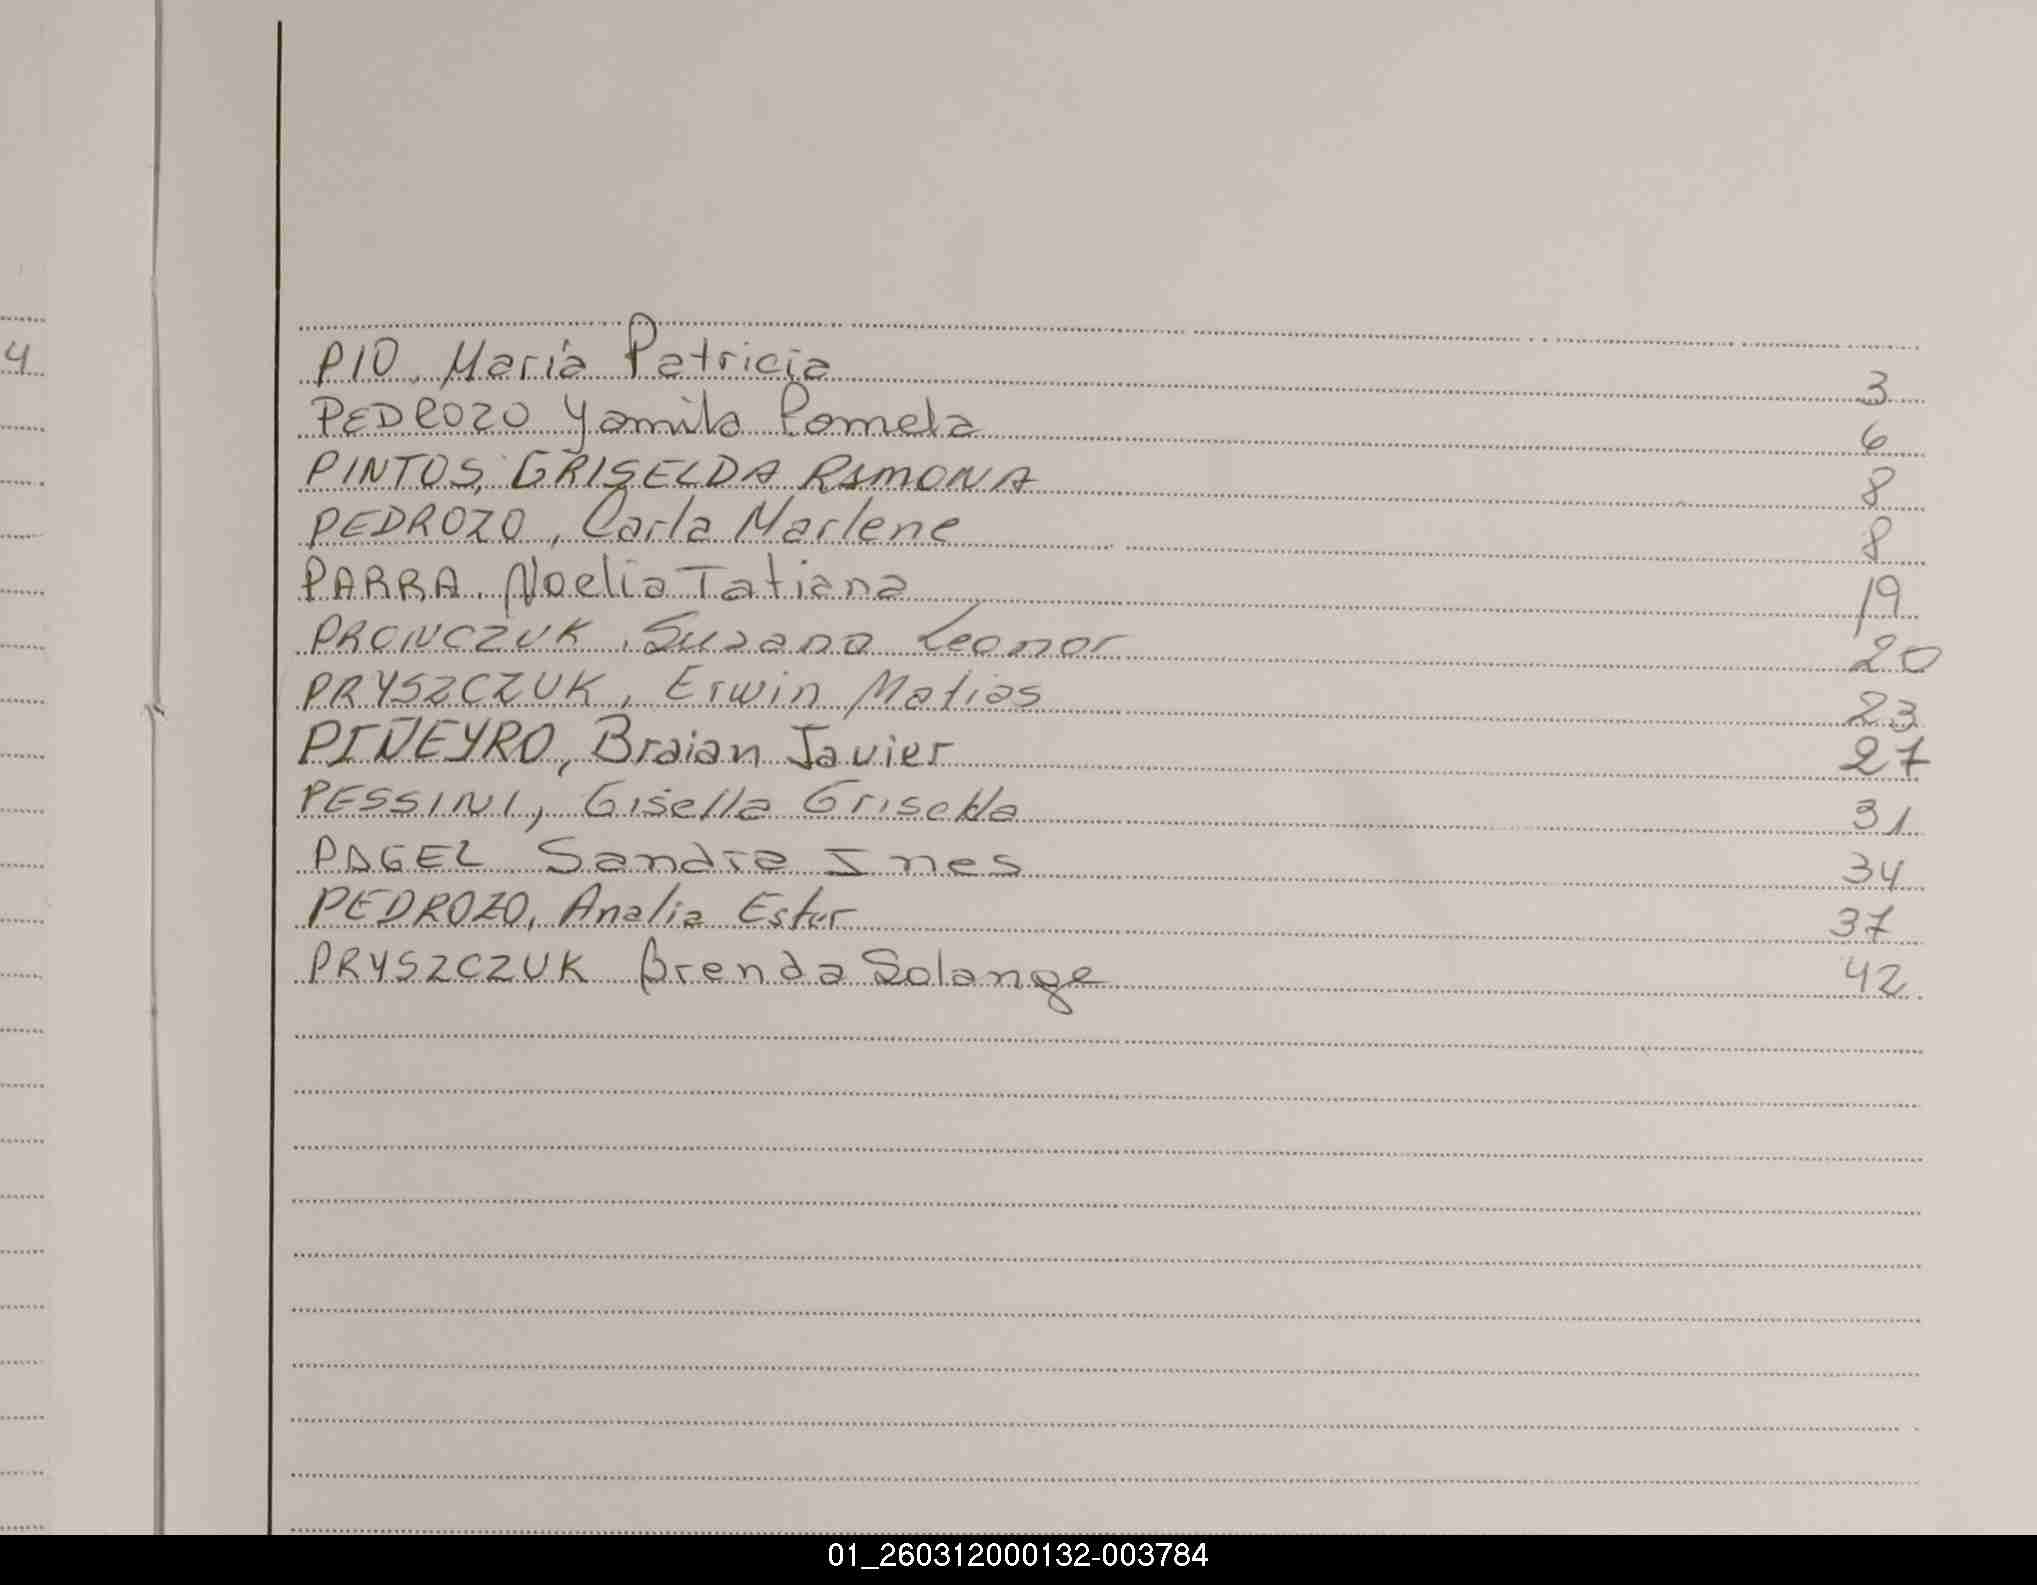 4
PIO, María Patricia 3
PEDROZO Yamila Pamela 6
PINTOS, GRISELDA RAMONA 8
PEDROZO, Carla Marlene 8
PARRA, Noelia Tatiana 19
PRONCZUK, Susana Leonor 20
PRYSZCZUK, Erwin Matias 23
PIÑEYRO, Braian Javier 27
PESSINI, Gisella Griselda 31
PAGEL Sandra Ines 34
PEDROZO, Analia Ester 37
PRYSZCZUK Brenda Solange 42
01_260312000132-003784